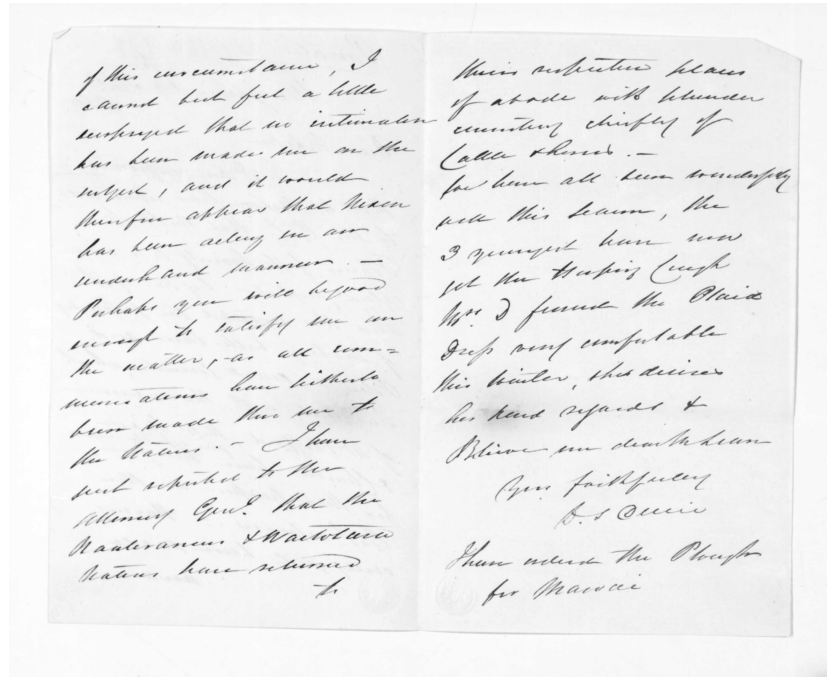 of this circumstance, I
cannot but feel a little
surprised that no intimation
has been made me on the
subject, and it would
therefore appear that Nixon
has been acting in an
underhand manner. —
Perhaps you will be good
enough to satisfy me on
the matter, as all com=
munications have hitherto
been made thro me to
the Natives. — I have
just reported to the
Attorney Genl. that the
&
Natives have returned
to
their respective places
of abode with plunder
consisting chiefly of
Cattle & horses. —
We have all been wonderfully
well this Season, the
3 youngest have now
got the Hooping Cough
Mrs. D found the Plaid
Dress very comfortable
this Winter, she desires
her kind regards &
Believe me dear McLean
Yrs. faithfully
D. S Durie
I have ordered the Plough
for Mawae